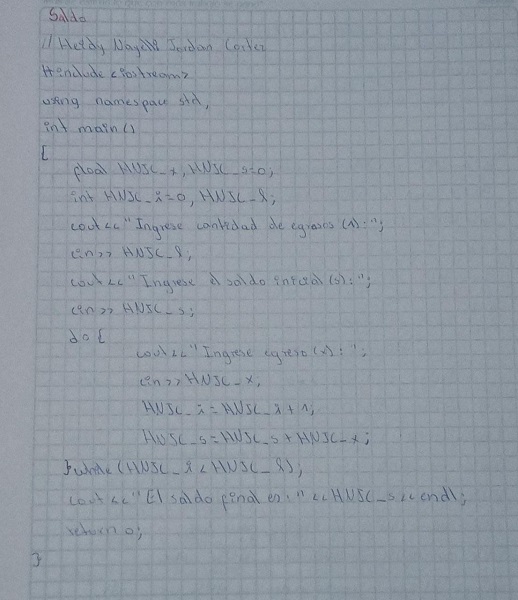 Saldo
// Heidy Nayely Jordan Cortez
#include <iostream>
using namespace std;
int main()
{
float HNJC_x, HNJC_s=0;
int HNJC_i=0, HNJC_l;
cout<<"Ingrese cantidad de egresos (l):";
cin>> HNJC_l;
cout<<"Ingrese el saldo inicial (s):";
cin>> HNJC_s;
do {
cout<<"Ingrese egreso (x): ";
cin>> HNJC_x;
HNJC_i=HNJC_i+1;
HNJC_s=HNJC_s+HNJC_x;
}while (HNJC_i<HNJC_l);
cout<<"El saldo final es:"<<HNJC_s<<endl;
return 0;
}